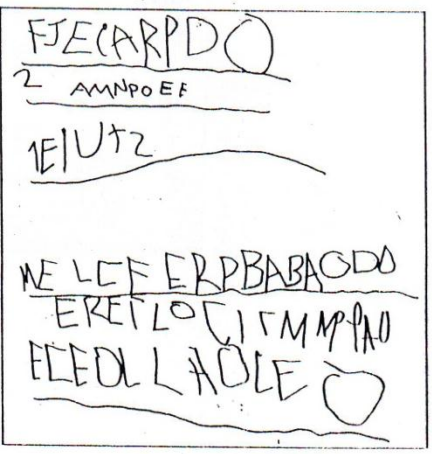 FJECARPDO
2 AMNPOEF
1E1U+2
WE LCF ERPBABAGDO
EREILOCI
ECEOLLAOLE